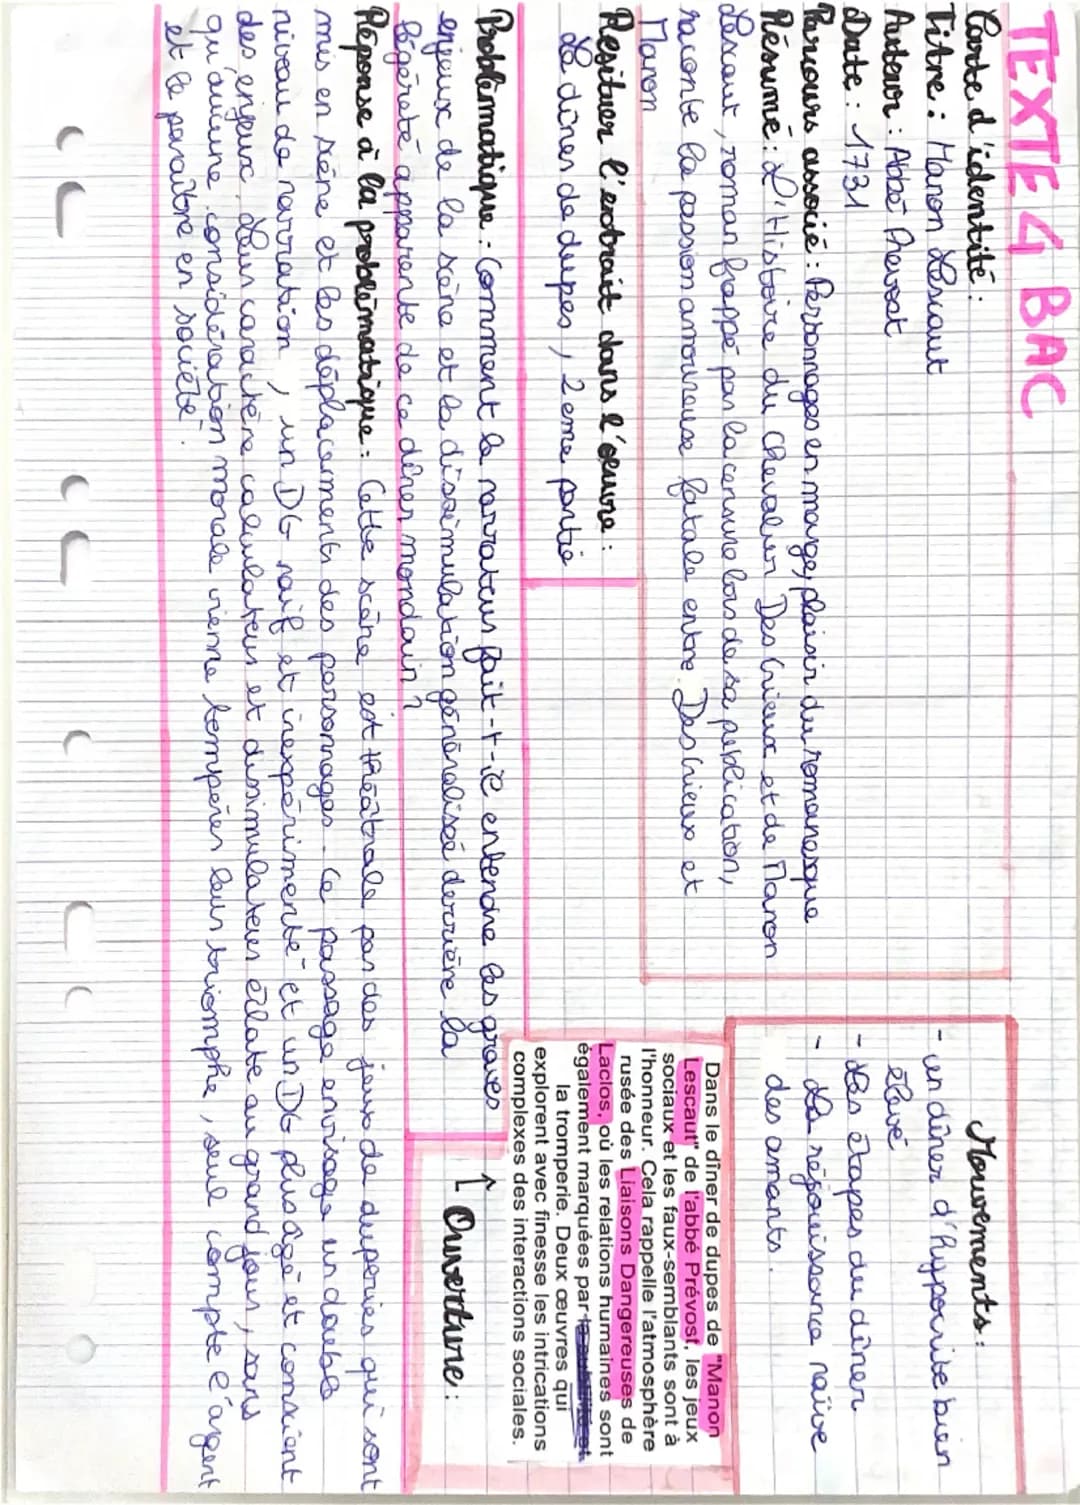 TEXTE 4 BAC
Carte d'identité :
Titre : Manon Lescaut
Auteur : Abbé Prevost
Date : 1731
Parcours associé : Personnages en marge, plaisir du romanesque
Résumé : L'Histoire du Chevalier Des Grieux et de Manon
Lescaut, roman frappé par la censure lors de sa publication,
raconte la passion amoureuse fatale entre Des Grieux et
Manon
Resituer l'extrait dans l'œuvre :
Le dîner de dupes, 2 eme partie
Mouvements :
- un dîner d'hypocrite bien
élevé
- Les étapes du dîner
- La réjouissance naïve
des amants.
Dans le dîner de dupes de "Manon
Lescaut" de l'abbé Prévost, les jeux
sociaux et les faux-semblants sont à
l'honneur. Cela rappelle l'atmosphère
rusée des Liaisons Dangereuses de
Laclos, où les relations humaines sont
également marquées par
la tromperie. Deux œuvres qui
explorent avec finesse les intrications
complexes des interactions sociales.
↑ Ouverture :
Problématique : Comment le narrateur fait-t-il entendre les graves
enjeux de la scène et la dissimulation généralisée derrière la
légèreté apparente de ce dîner mondain ?
Réponse à la problématique : Cette scène est théâtrale par des jeux de duperies qui sont
mis en scène et les déplacements des personnages. Ce passage envisage un double
niveau de narration, un DG naïf et inexpérimenté et un DG plus âgé et conscient
des enjeux, leur caractère calculateur et dissimulateur éclate au grand jour, sans
qu'aucune considération morale vienne tempérer leur triomphe, seul compte l'argent
et le paraître en société.